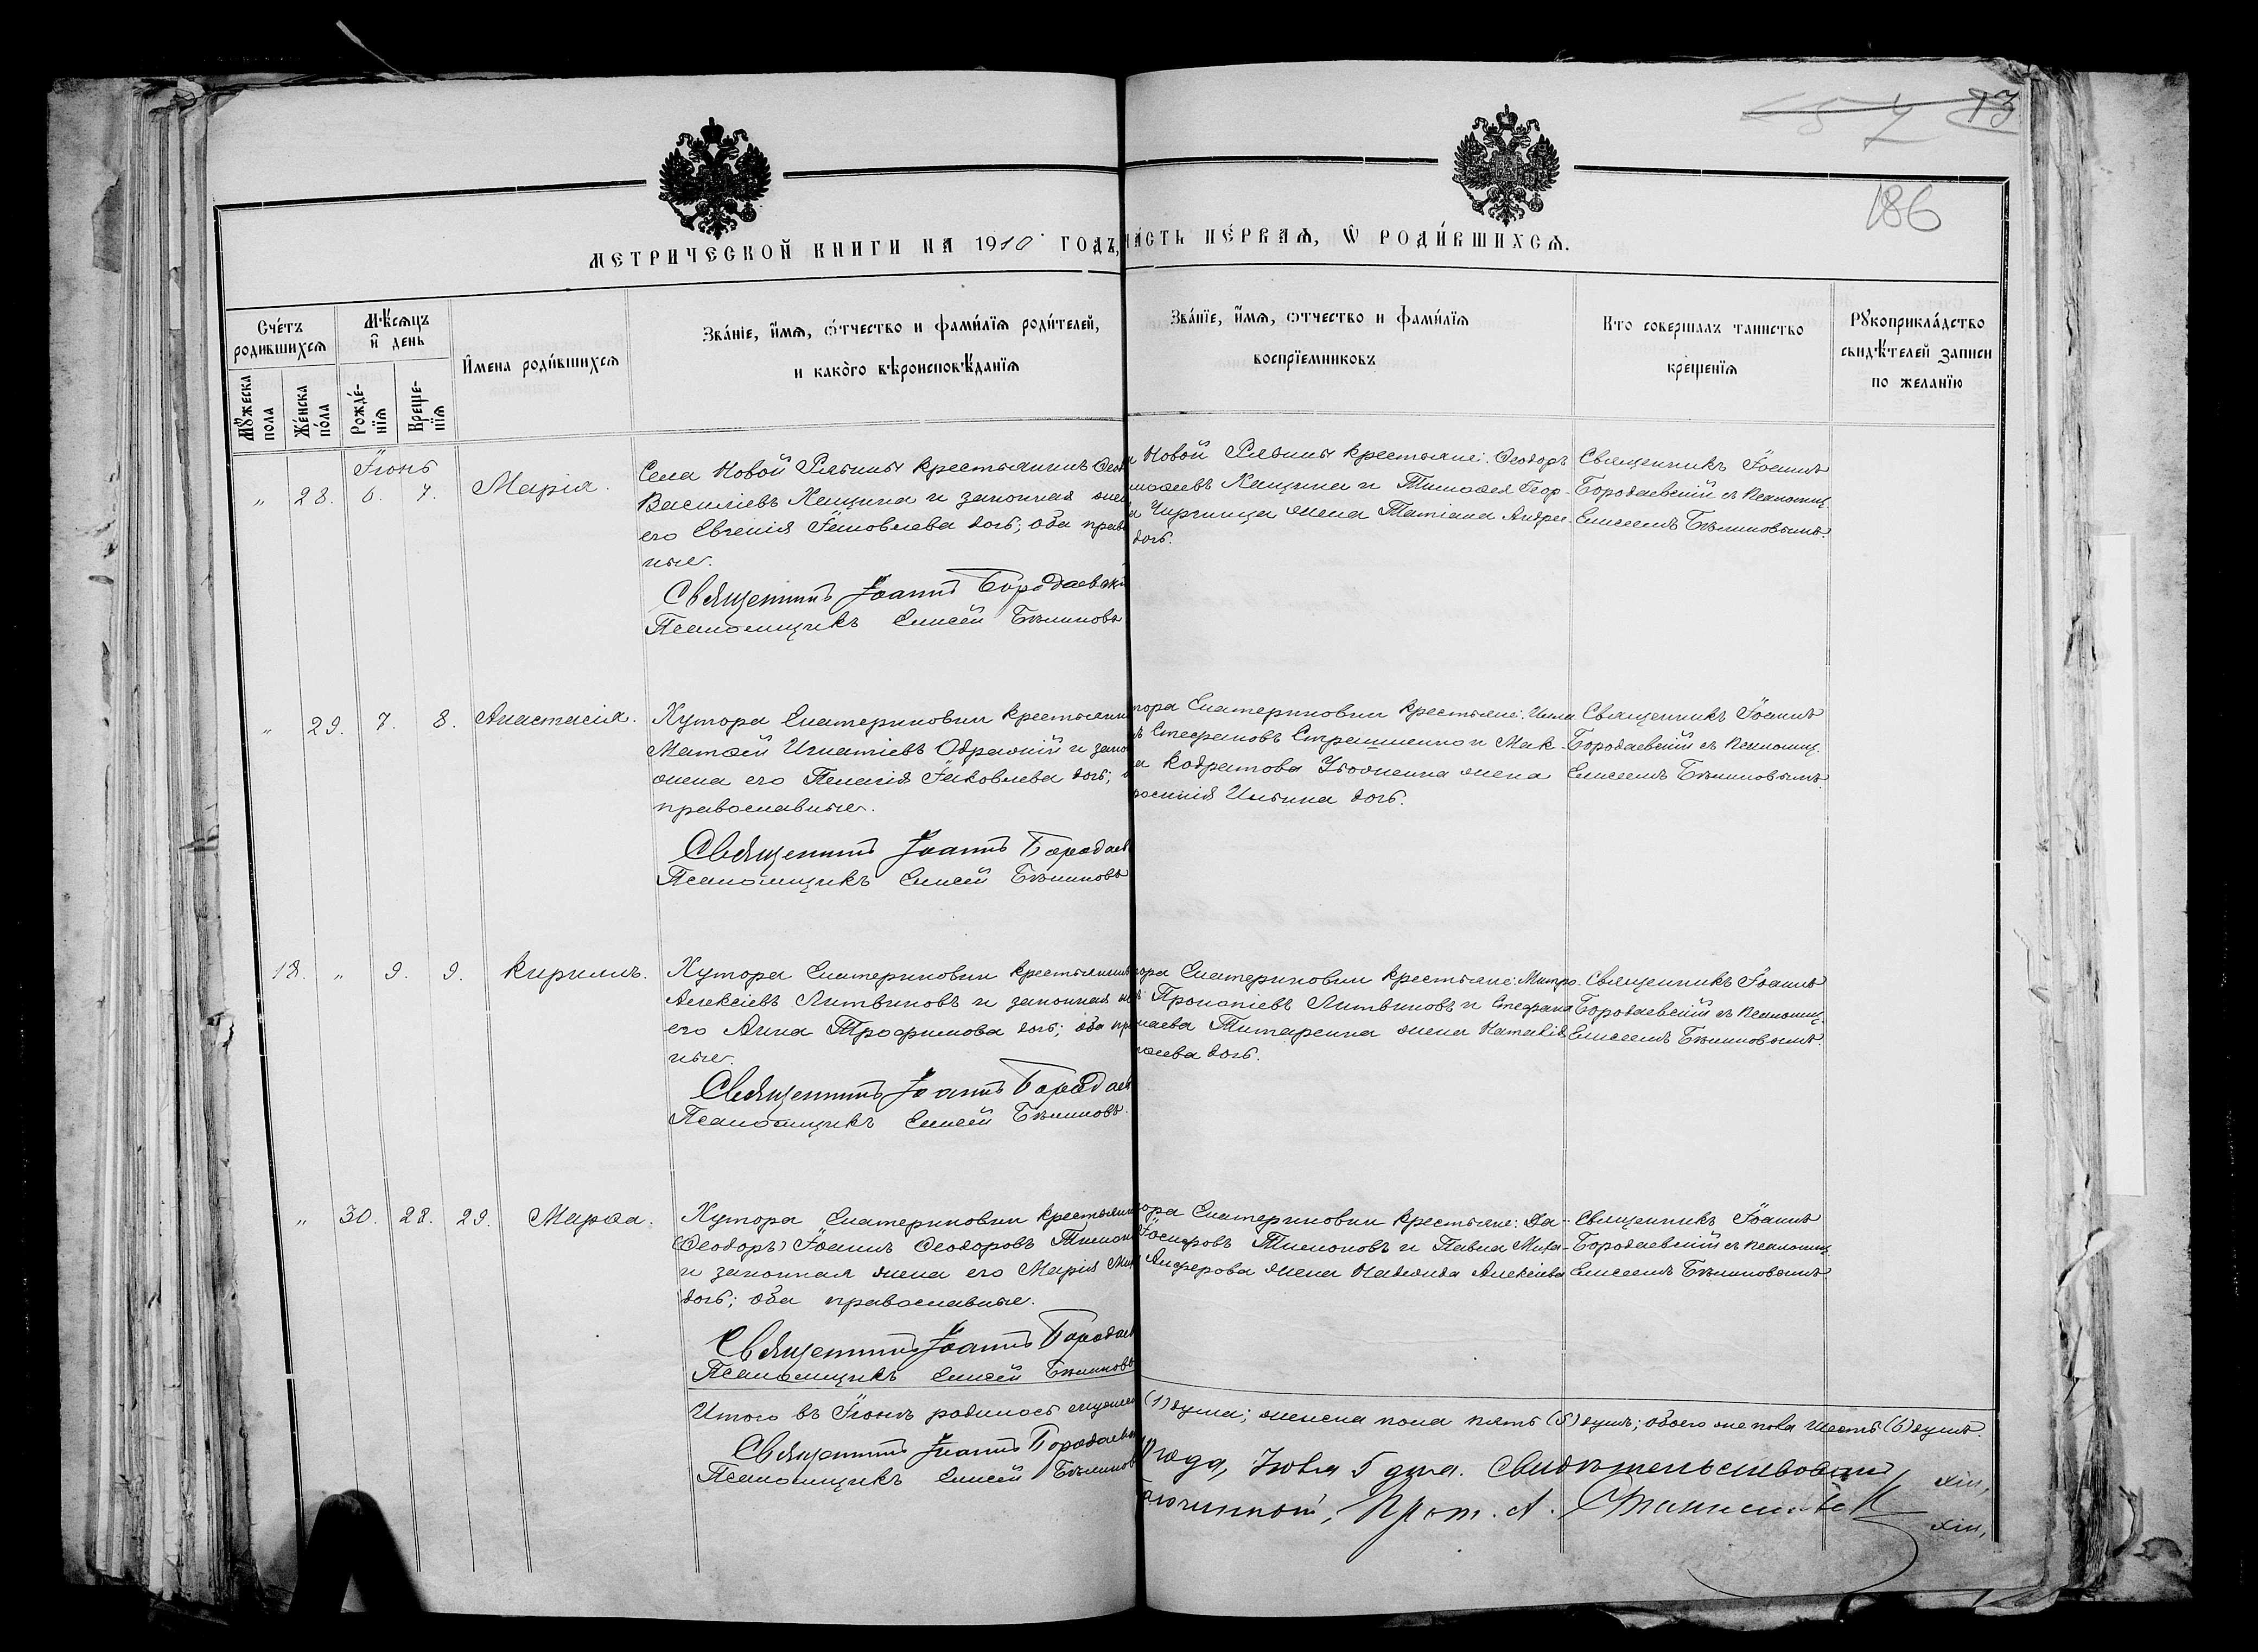 13
186
МЕТРИЧЕСКОЙ КНИГИ НА 1910 ГОДЪ, ЧАСТЬ ПЕРВАЯ, Ѡ РОДИВШИХСЯ.
Счетъ родившихся
Мѣсяцъ и день
Мужеска пола
Женска пола
Рожденія
Крещенія
Имена родившихся
Званіе, имя, отчество и фамилія родителей,
и какого вѣроисповѣданія
Званіе, имя, отчество и фамилія
воспріемниковъ
Кто совершалъ таинство
крещенія
Рукоприкладство
свидѣтелей записи
по желанію
Іюнь
" 28. 6. 7. Марія.
Села Новой Рябины крестьянинъ Ѳеод
Василіевъ Кащина и законная жен
его Евгенія Іаковлева дочь; оба прав
ные.
Священникъ Іоаннъ Бородаевскі
Псаломщикъ Елисей Бѣлиновъ
Новой Рябины крестьяне: Ѳеодоръ
моѳеевъ Кащина и Тимоѳея Геор-
жена Татіана Андре
дочь.
Священникъ Іоаннъ
Бородаевскій съ псаломщ.
Елисеемъ Бѣлиновымъ.
" 29. 7. 8. Анастасія.
Хутора Екатериновки крестьянин
Матѳей Игнатіевъ Одражій и зако
жена его Пелагія Іаковлева дочь;
православные.
Священникъ Іоаннъ Бородаев
Псаломщикъ Елисей Бѣлиновъ
тора Екатериновки крестьяне: Илл
Стефановъ Страшненко и Мак-
Кодратова жена
росинія Ильина дочь.
Священникъ Іоаннъ
Бородаевскій съ псаломщ.
Елисеемъ Бѣлиновымъ.
18. " 9. 9. Кириллъ.
Хутора Екатериновки крестьянинъ
Алексіевъ Литвиновъ и законная
его Анна Трофимова дочь; оба пр
ные.
Священникъ Іоаннъ Бородаев
Псаломщикъ Елисей Бѣлиновъ.
тора Екатериновки крестьяне: Митро-
Прокопіевъ Литвиновъ и Стефана
лаева Титаренка жена Наталія
дочь.
Священникъ Іоаннъ
Бородаевскій съ псаломщ.
Елисеемъ Бѣлиновымъ.
" 30. 28. 29. Марѳа.
Хутора Екатериновки крестьянин
(Ѳеодоръ) Іоаннъ Ѳеодоровъ Тимон
и законная жена его Марія Ми
дочь; оба православные.
Священникъ Іоаннъ Бородаев
Псаломщикъ Елисей Бѣлиновъ
тора Екатериновки крестьяне: Да-
Іосифовъ Тимоновъ и Павла Миха-
Анферова жена Надежда Алексіева
Священникъ Іоаннъ
Бородаевскій съ псаломщ.
Елисеемъ Бѣлиновымъ
Итого въ Іюнѣ родилось мужеск (1) душа; женска пола пять (5) душъ; обоего же пола шесть (6) душъ.
Священникъ Іоаннъ Бородаевск
Псаломщикъ Елисей Бѣлинов
года, Іюля 5 дня. Свидѣтельствовалъ
Прот. А.